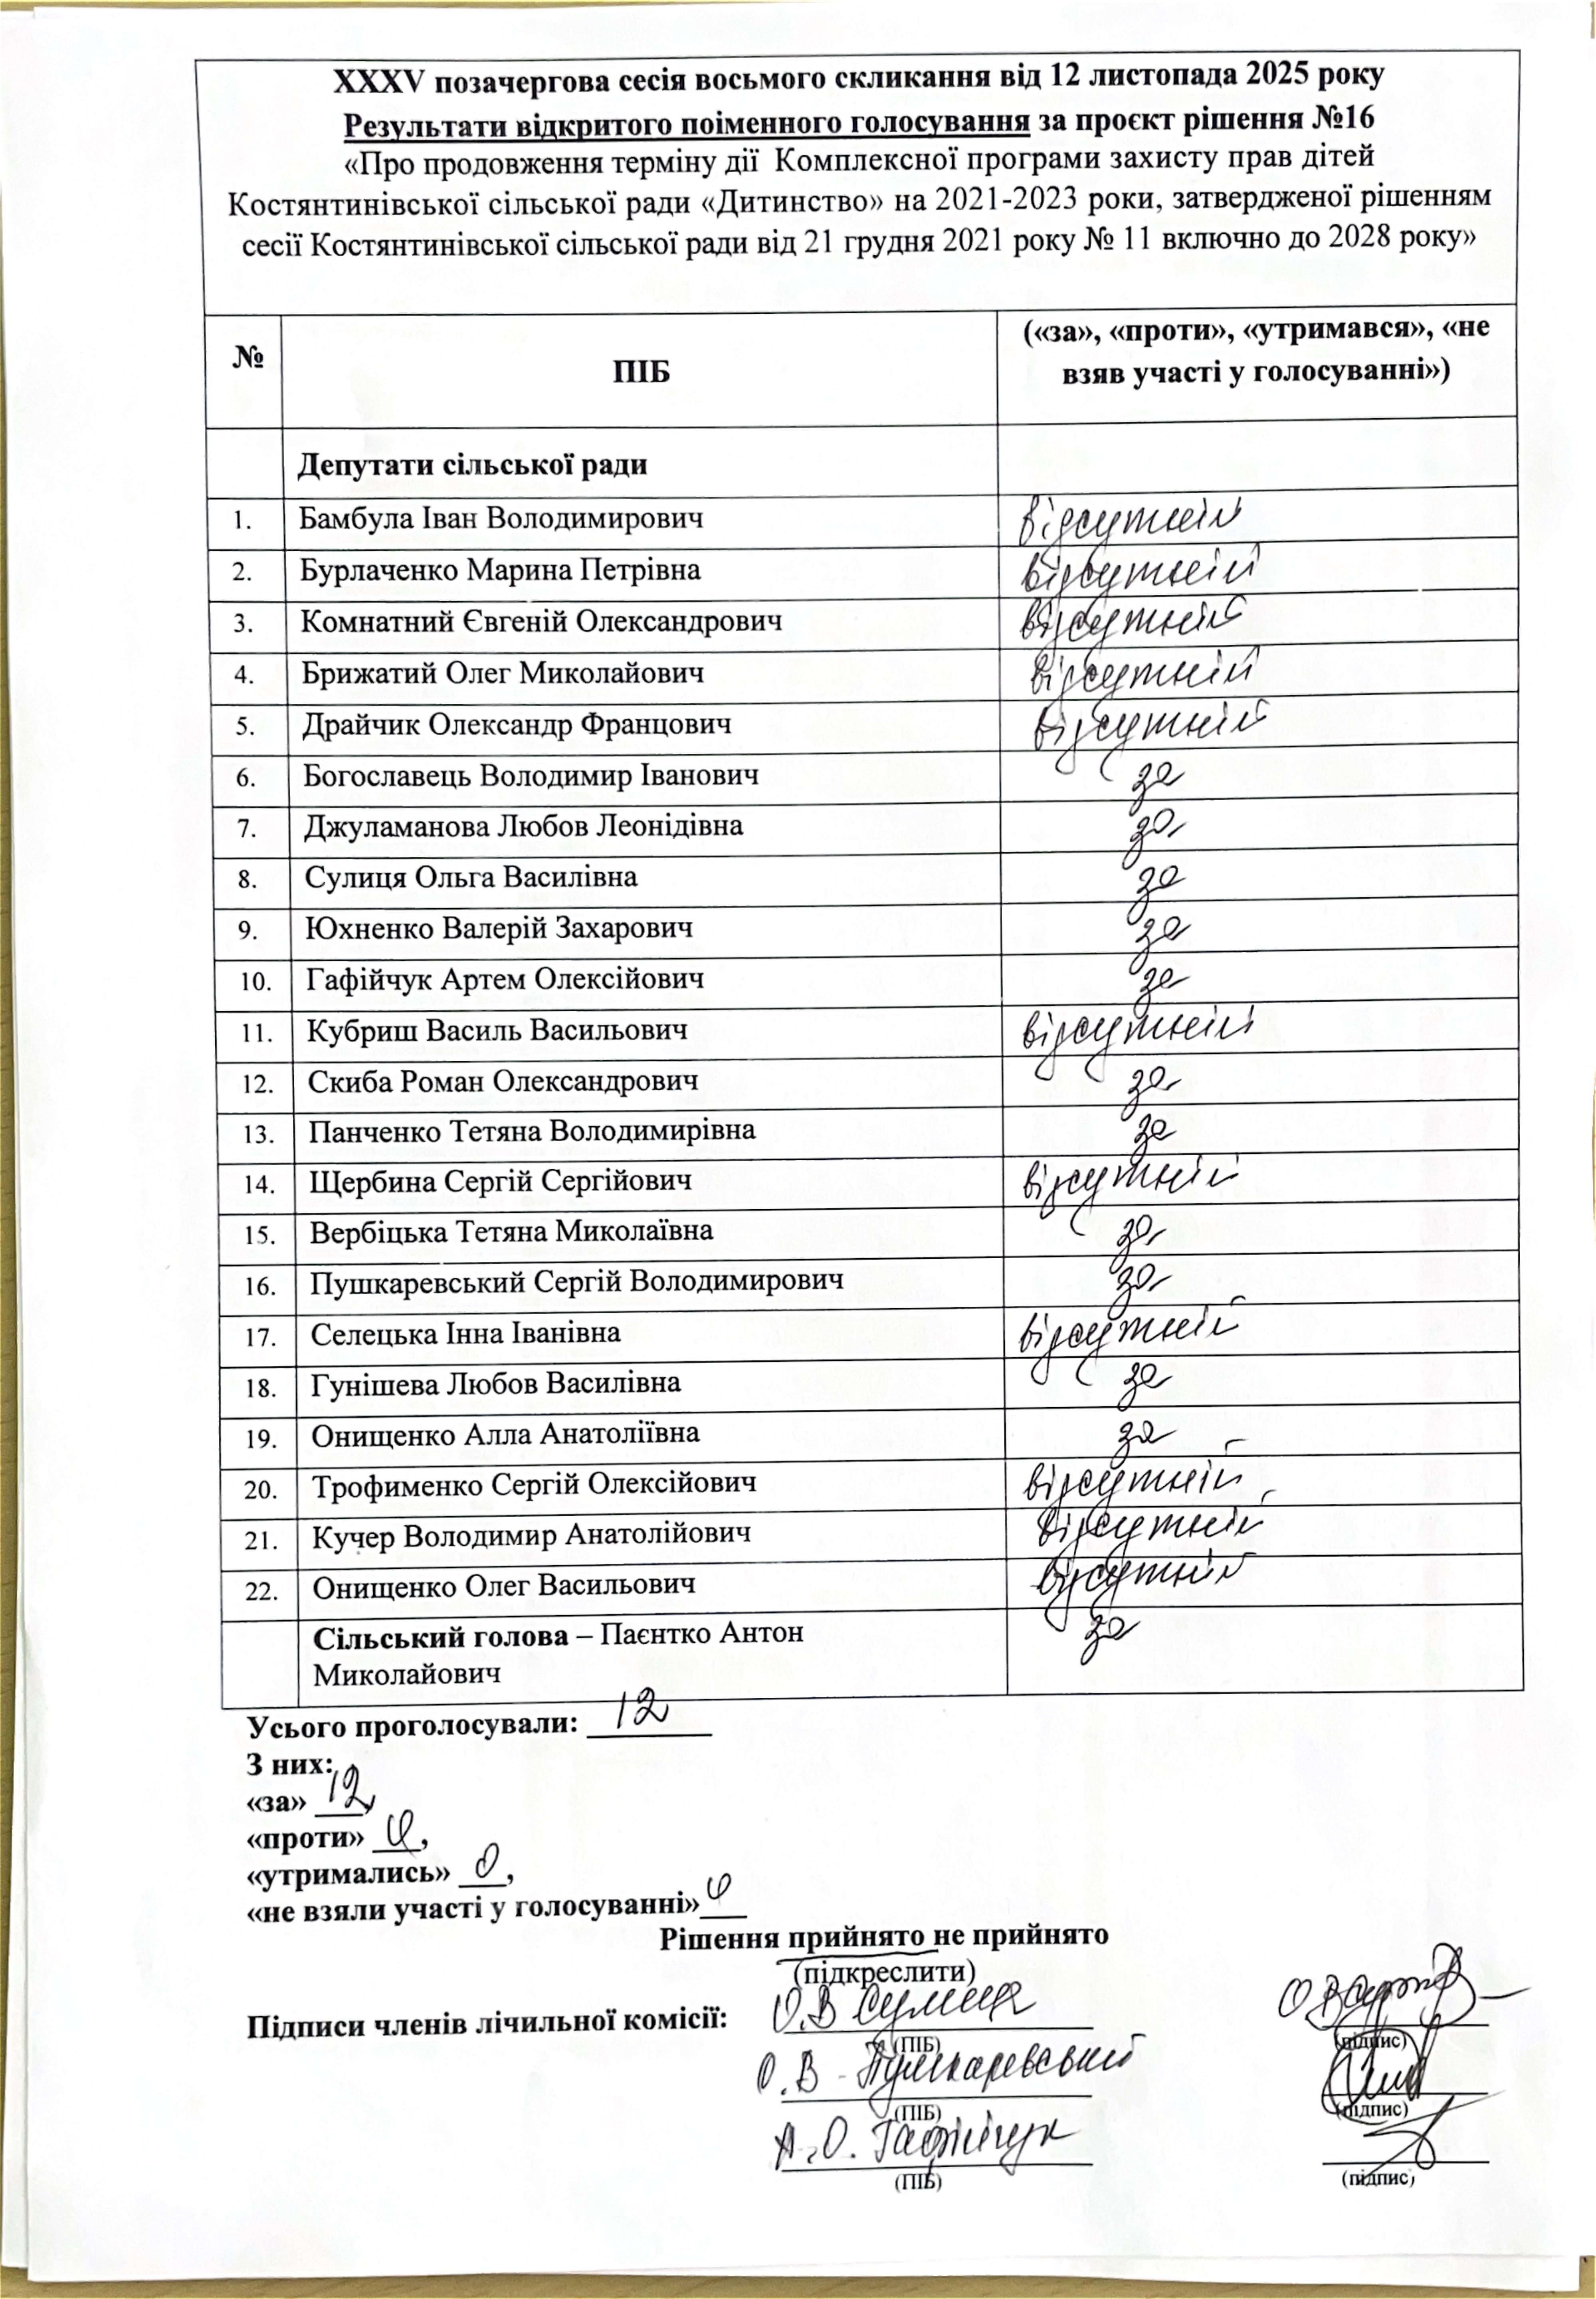 XXXV позачергова сесія восьмого скликання від 12 листопада 2025 року
Результати відкритого поіменного голосування за проєкт рішення №16
«Про продовження терміну дії Комплексної програми захисту прав дітей
Костянтинівської сільської ради «Дитинство» на 2021-2023 роки, затвердженої рішенням
сесії Костянтинівської сільської ради від 21 грудня 2021 року № 11 включно до 2028 року»
№ ПІБ («за», «проти», «утримався», «не
взяв участі у голосуванні»)
Депутати сільської ради
1. Бамбула Іван Володимирович відсутній
2. Бурлаченко Марина Петрівна відсутній
3. Комнатний Євгеній Олександрович відсутній
4. Брижатий Олег Миколайович відсутній
5. Драйчик Олександр Францович відсутній
6. Богославець Володимир Іванович за
7. Джуламанова Любов Леонідівна за
8. Сулиця Ольга Василівна за
9. Юхненко Валерій Захарович за
10. Гафійчук Артем Олексійович за
11. Кубриш Василь Васильович відсутній
12. Скиба Роман Олександрович за
13. Панченко Тетяна Володимирівна за
14. Щербина Сергій Сергійович відсутній
15. Вербіцька Тетяна Миколаївна за
16. Пушкаревський Сергій Володимирович за
17. Селецька Інна Іванівна відсутній
18. Гунішева Любов Василівна за
19. Онищенко Алла Анатоліївна за
20. Трофименко Сергій Олексійович відсутній
21. Кучер Володимир Анатолійович відсутній
22. Онищенко Олег Васильович відсутній
Сільський голова – Паєнтко Антон за
Миколайович
Усього проголосували: 12
З них:
«за» 12,
«проти» 0,
«утримались» 0,
«не взяли участі у голосуванні» 0
Рішення прийнято не прийнято
(підкреслити)
Підписи членів лічильної комісії: О.В Сулиця
(ПІБ) (підпис)
О.В Пушкаревський
(ПІБ) (підпис)
А.О. Гафійчук
(ПІБ) (підпис)